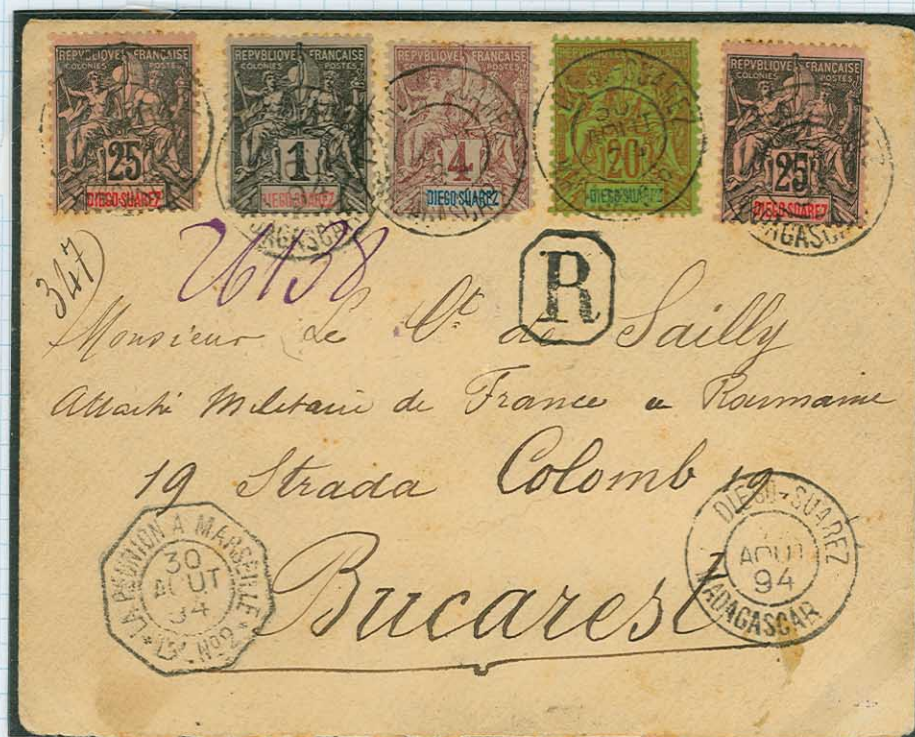 REPVBLIQVE FRANÇAISE
COLONIES POSTES
25
DIEGO-SUAREZ
REPVBLIQVE FRANÇAISE
COLONIES POSTES
1
DIEGO-SUAREZ
REPVBLIQVE FRANÇAISE
COLONIES POSTES
4
DIEGO-SUAREZ
REPVBLIQVE FRANÇAISE
COLONIES POSTES
20
DIEGO-SUAREZ
REPVBLIQVE FRANÇAISE
COLONIES POSTES
25
DIEGO-SUAREZ
347
26138
R
Monsieur Le Ct de Sailly
Attaché Militaire de France a Roumanie
19 Strada Colomb 19
Bucarest
LA REUNION A MARSEILLE
30
AOUT
94
DIEGO-SUAREZ
AOUT
94
MADAGASCAR